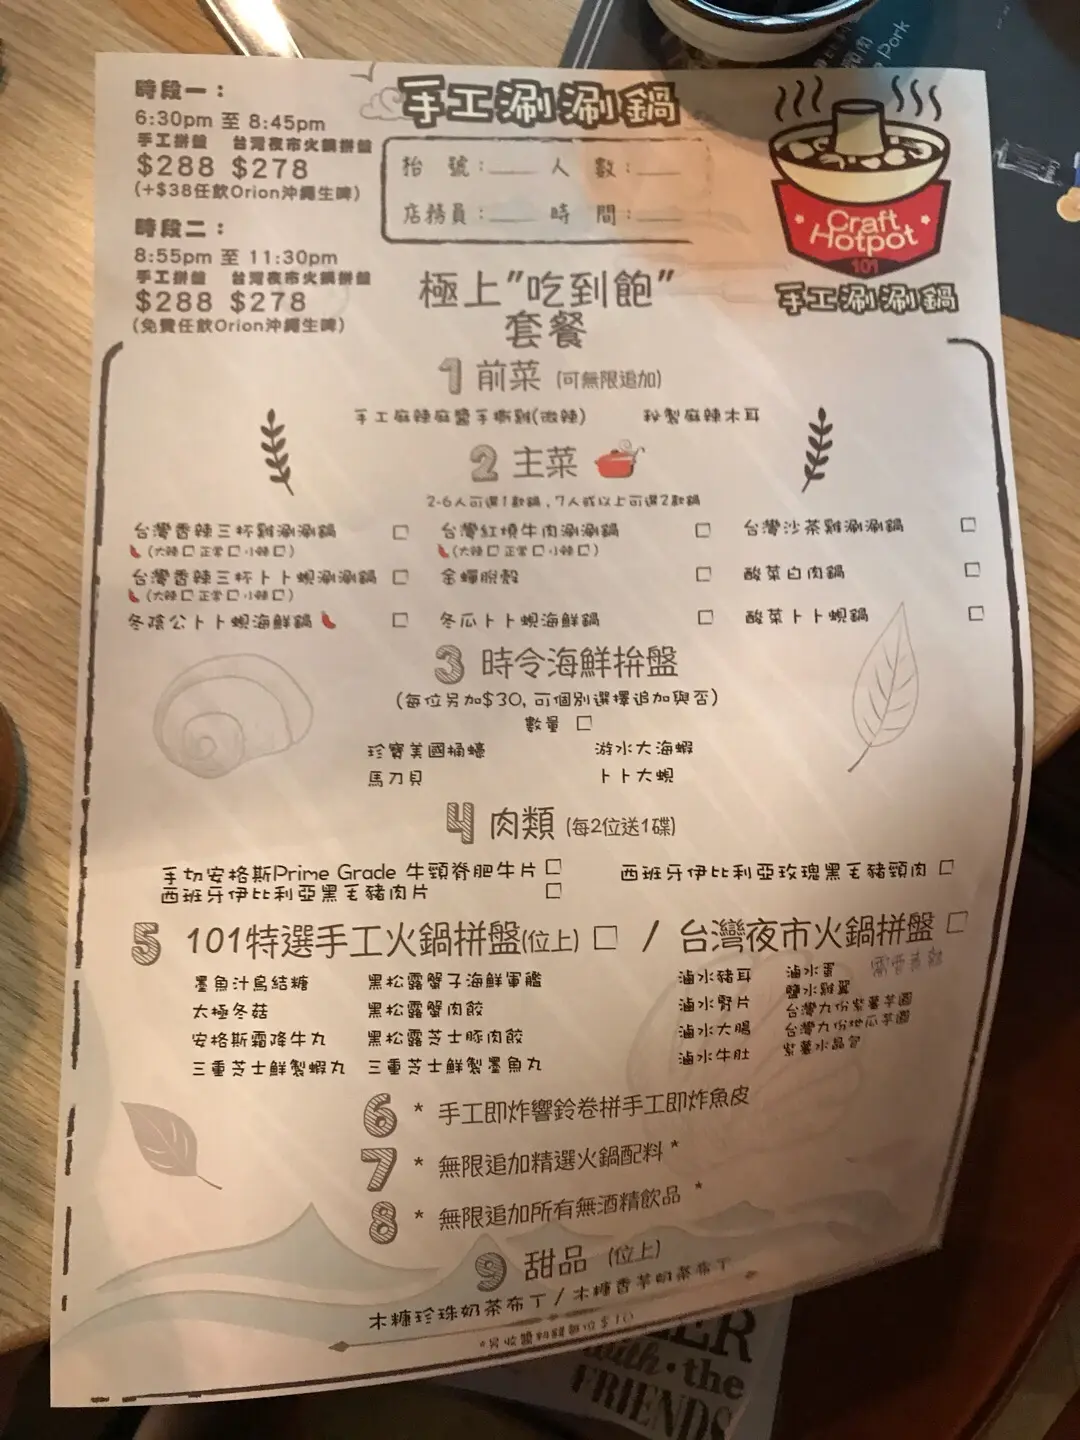 時段一：
6:30pm 至 8:45pm
手工拼盤 台灣夜市火鍋拼盤
$288 $278
(+$38任飲Orion沖繩生啤)
時段二：
8:55pm 至 11:30pm
手工拼盤 台灣夜市火鍋拼盤
$288 $278
(免費任飲Orion沖繩生啤)
手工涮涮鍋
枱 號：____ 人 數：____
店務員：____ 時 間：____
Craft
Hotpot
101
手工涮涮鍋
Pork
極上"吃到飽"
套餐
1 前菜 (可無限追加)
手工麻辣麻醬手撕雞(微辣) 秘製麻辣木耳
2 主菜
2-6人可選1款鍋，7人或以上可選2款鍋
台灣香辣三杯雞涮涮鍋 □ 台灣紅燒牛肉涮涮鍋 □ 台灣沙茶雞涮涮鍋 □
(大辣□正常□小辣□) (大辣□正常□小辣□)
台灣香辣三杯卜卜蜆涮涮鍋 □ 金蟬脫殼 □ 酸菜白肉鍋 □
(大辣□正常□小辣□)
冬陰公卜卜蜆海鮮鍋 □ 冬瓜卜卜蜆海鮮鍋 □ 酸菜卜卜蜆鍋 □
3 時令海鮮拚盤
(每位另加$30, 可個別選擇追加與否)
數量 □
珍寶美國桶蠔 游水大海蝦
馬刀貝 卜卜大蜆
4 肉類 (每2位送1碟)
手切安格斯Prime Grade 牛頸脊肥牛片 □ 西班牙伊比利亞玫瑰黑毛豬頸肉 □
西班牙伊比利亞黑毛豬肉片 □
5 101特選手工火鍋拼盤(位上) □ / 台灣夜市火鍋拼盤 □
墨魚汁烏結糖 黑松露蟹子海鮮軍艦 滷水豬耳 滷水蛋
太極冬菇 黑松露蟹肉餃 滷水野片 鹽水雞翼
安格斯霜降牛丸 黑松露芝士豚肉餃 滷水大腸 台灣九份紫薯芋圓
三重芝士鮮製蝦丸 三重芝士鮮製墨魚丸 滷水牛肚 台灣九份地瓜芋圓
紫薯水晶包
6 * 手工即炸響鈴卷拼手工即炸魚皮
7 * 無限追加精選火鍋配料 *
8 * 無限追加所有無酒精飲品 *
9 甜品 (位上)
木糠珍珠奶茶布丁 / 木糠香芋奶茶布丁
with • the
FRIENDS